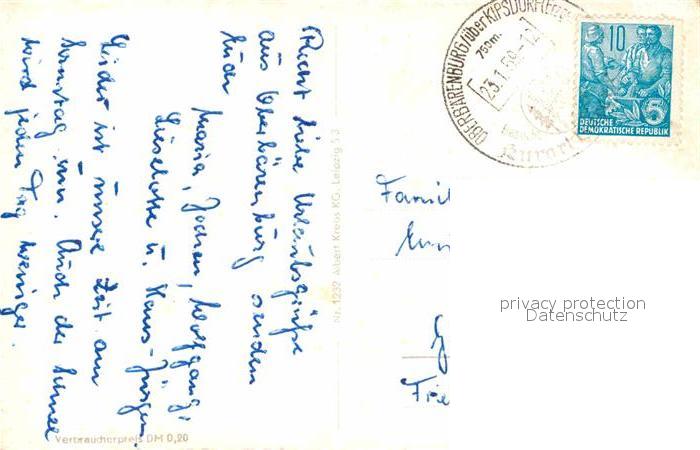 Recht liebe Urlaubsgrüße
aus Oberbärenburg senden
Euch
Maria, Jochen, Wolfgang,
Lieselotte u. Hans-Jürgen.
Leider ist unsere Zeit am
Sonntag um. Auch der Schnee
wird jeden Tag weniger.
Verbraucherpreis DM 0,20
Nr. 1232 Albert Kreos KG. Leipzig S 3
OBERBÄRENBURG/über KIPSDORF
750m.
23.1.59-12
Kurort
10
5
DEUTSCHE
DEMOKRATISCHE REPUBLIK
Famil
Frie
privacy protection
Datenschutz